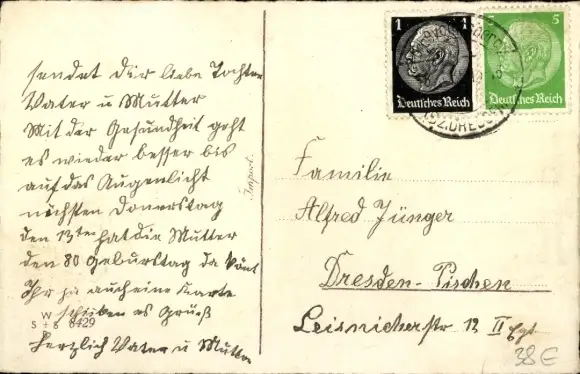 sendet dir liebe Tochter
Vater u Mutter
Mit der Gesundheit geht
es wieder besser bis
auf das Augenlicht
nächsten Donerstag
den 13ten hat die Mutter
den 80 Geburstag da könt
Ihr ja auch eine Karte
schreiben es grüßt
herzlich Vater u Mutter
W
S + S 8429
B
Import.
1 1
Deutsches Reich
5 5
Deutsches Reich
Familie
Alfred Jünger
Dresden-Pischen
Leisnicherstr 12 II
38 €